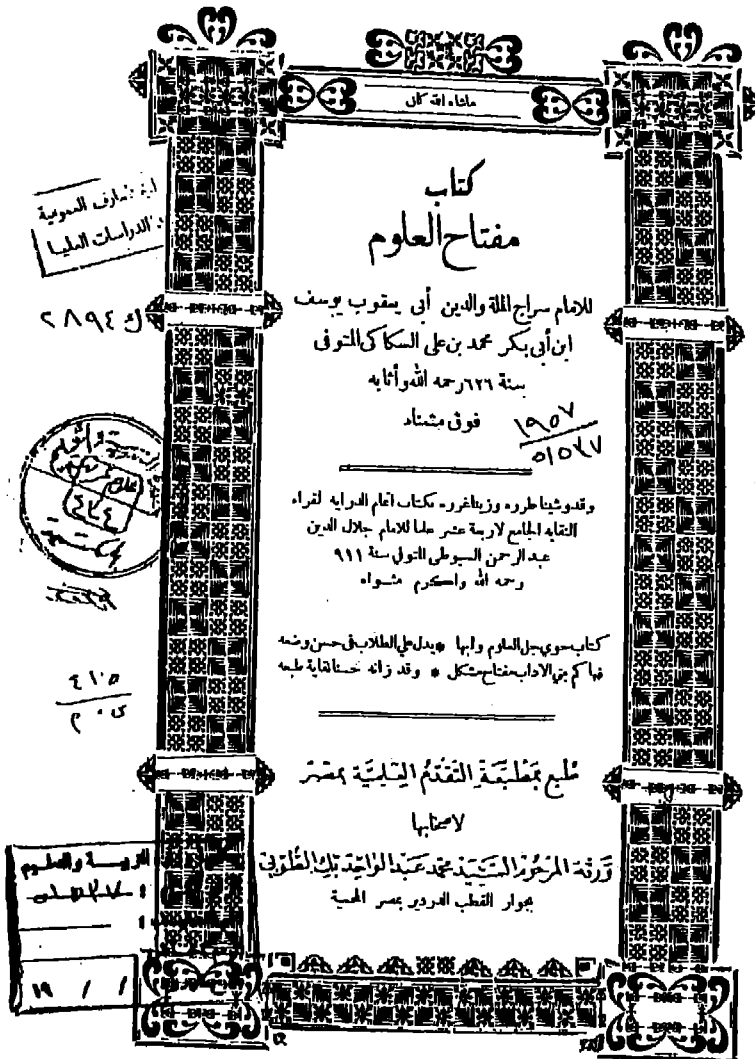 ماشاء الله كان
كتاب
مفتاح العلوم
للامام سراج الملة والدين أبى يعقوب يوسف
ابن أبى بكر محمد بن على السكاكى المتوفى
سنة ٦٢٦ رحمه الله وأثابه
فوق متمناه
وقد وشينا طرره وزينا غرره بكتاب اتمام الدرايه لقراء
النقايه الجامع لاربعة عشر علما للامام جلال الدين
عبد الرحمن السيوطى المتوفى سنة ٩١١
رحمه الله واكرم مثواه
كتاب حوى جل العلوم وانها * يدل على الطلاب فى حسن وضعه
فهاكم بنى الاداب مفتاح مشكل * وقد زانه حسنا نقاية طبعه
طبع بمطبعة التقدم العلمية بمصر
لاصحابها
ورثة المرحوم السيد محمد عبد الواحد بك الطوبى
بجوار القطب الدردير بمصر المحمية
الدراسات العليا
ك ٢٨٩٤
١٩٥٧
٥١٥٣٧
٤٧٤
٤١٥
التربية والعلوم
١ / / ١٩